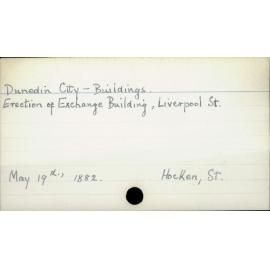 Dunedin City - Buildings.
Erection of Exchange Building, Liverpool St.
May 19th, 1882. Hocken, St.